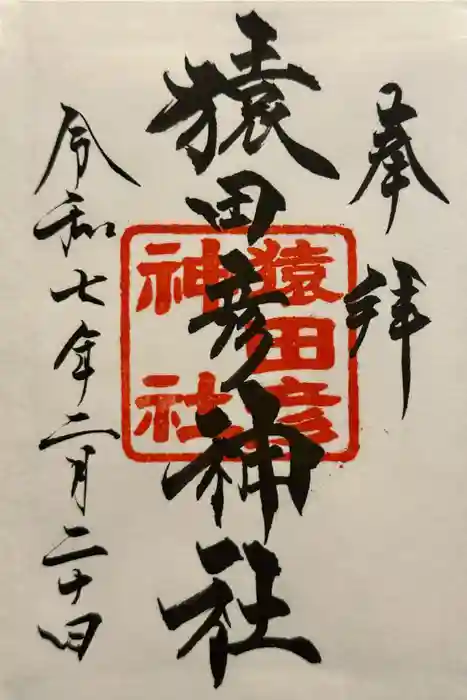 奉拝
猿田彦神社
猿田彦
神社
令和七年二月二十日